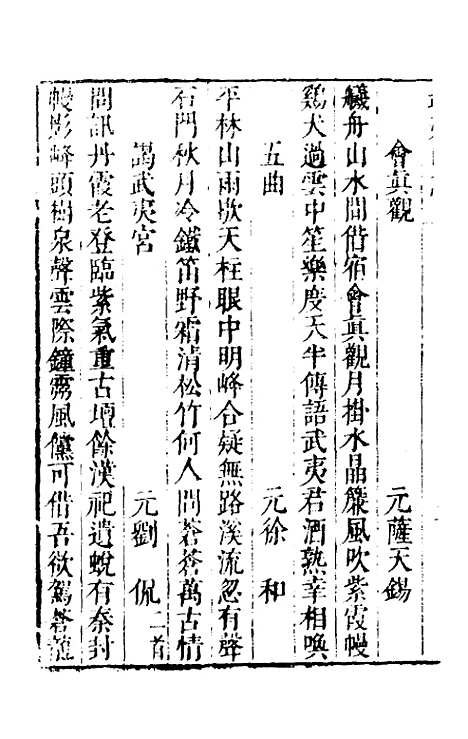 會眞觀　元薩天錫
艤舟山水間借宿會眞觀月掛水晶簾風吹紫霞幔
鷄犬過雲中笙樂度天半傳語武夷君酒熟幸相喚
五曲　元徐和
平林山雨歇天柱眼中明峰合疑無路溪流忽有聲
石門秋月冷鐵笛野霜清松竹何人問蒼蒼萬古情
謁武夷宮　元劉侃二首
問訊丹霞老登臨紫氣重古壇餘漢祀遺蛻有秦封
幔影峰頭樹泉聲雲際鐘霧風儻可借吾欲駕蒼龍